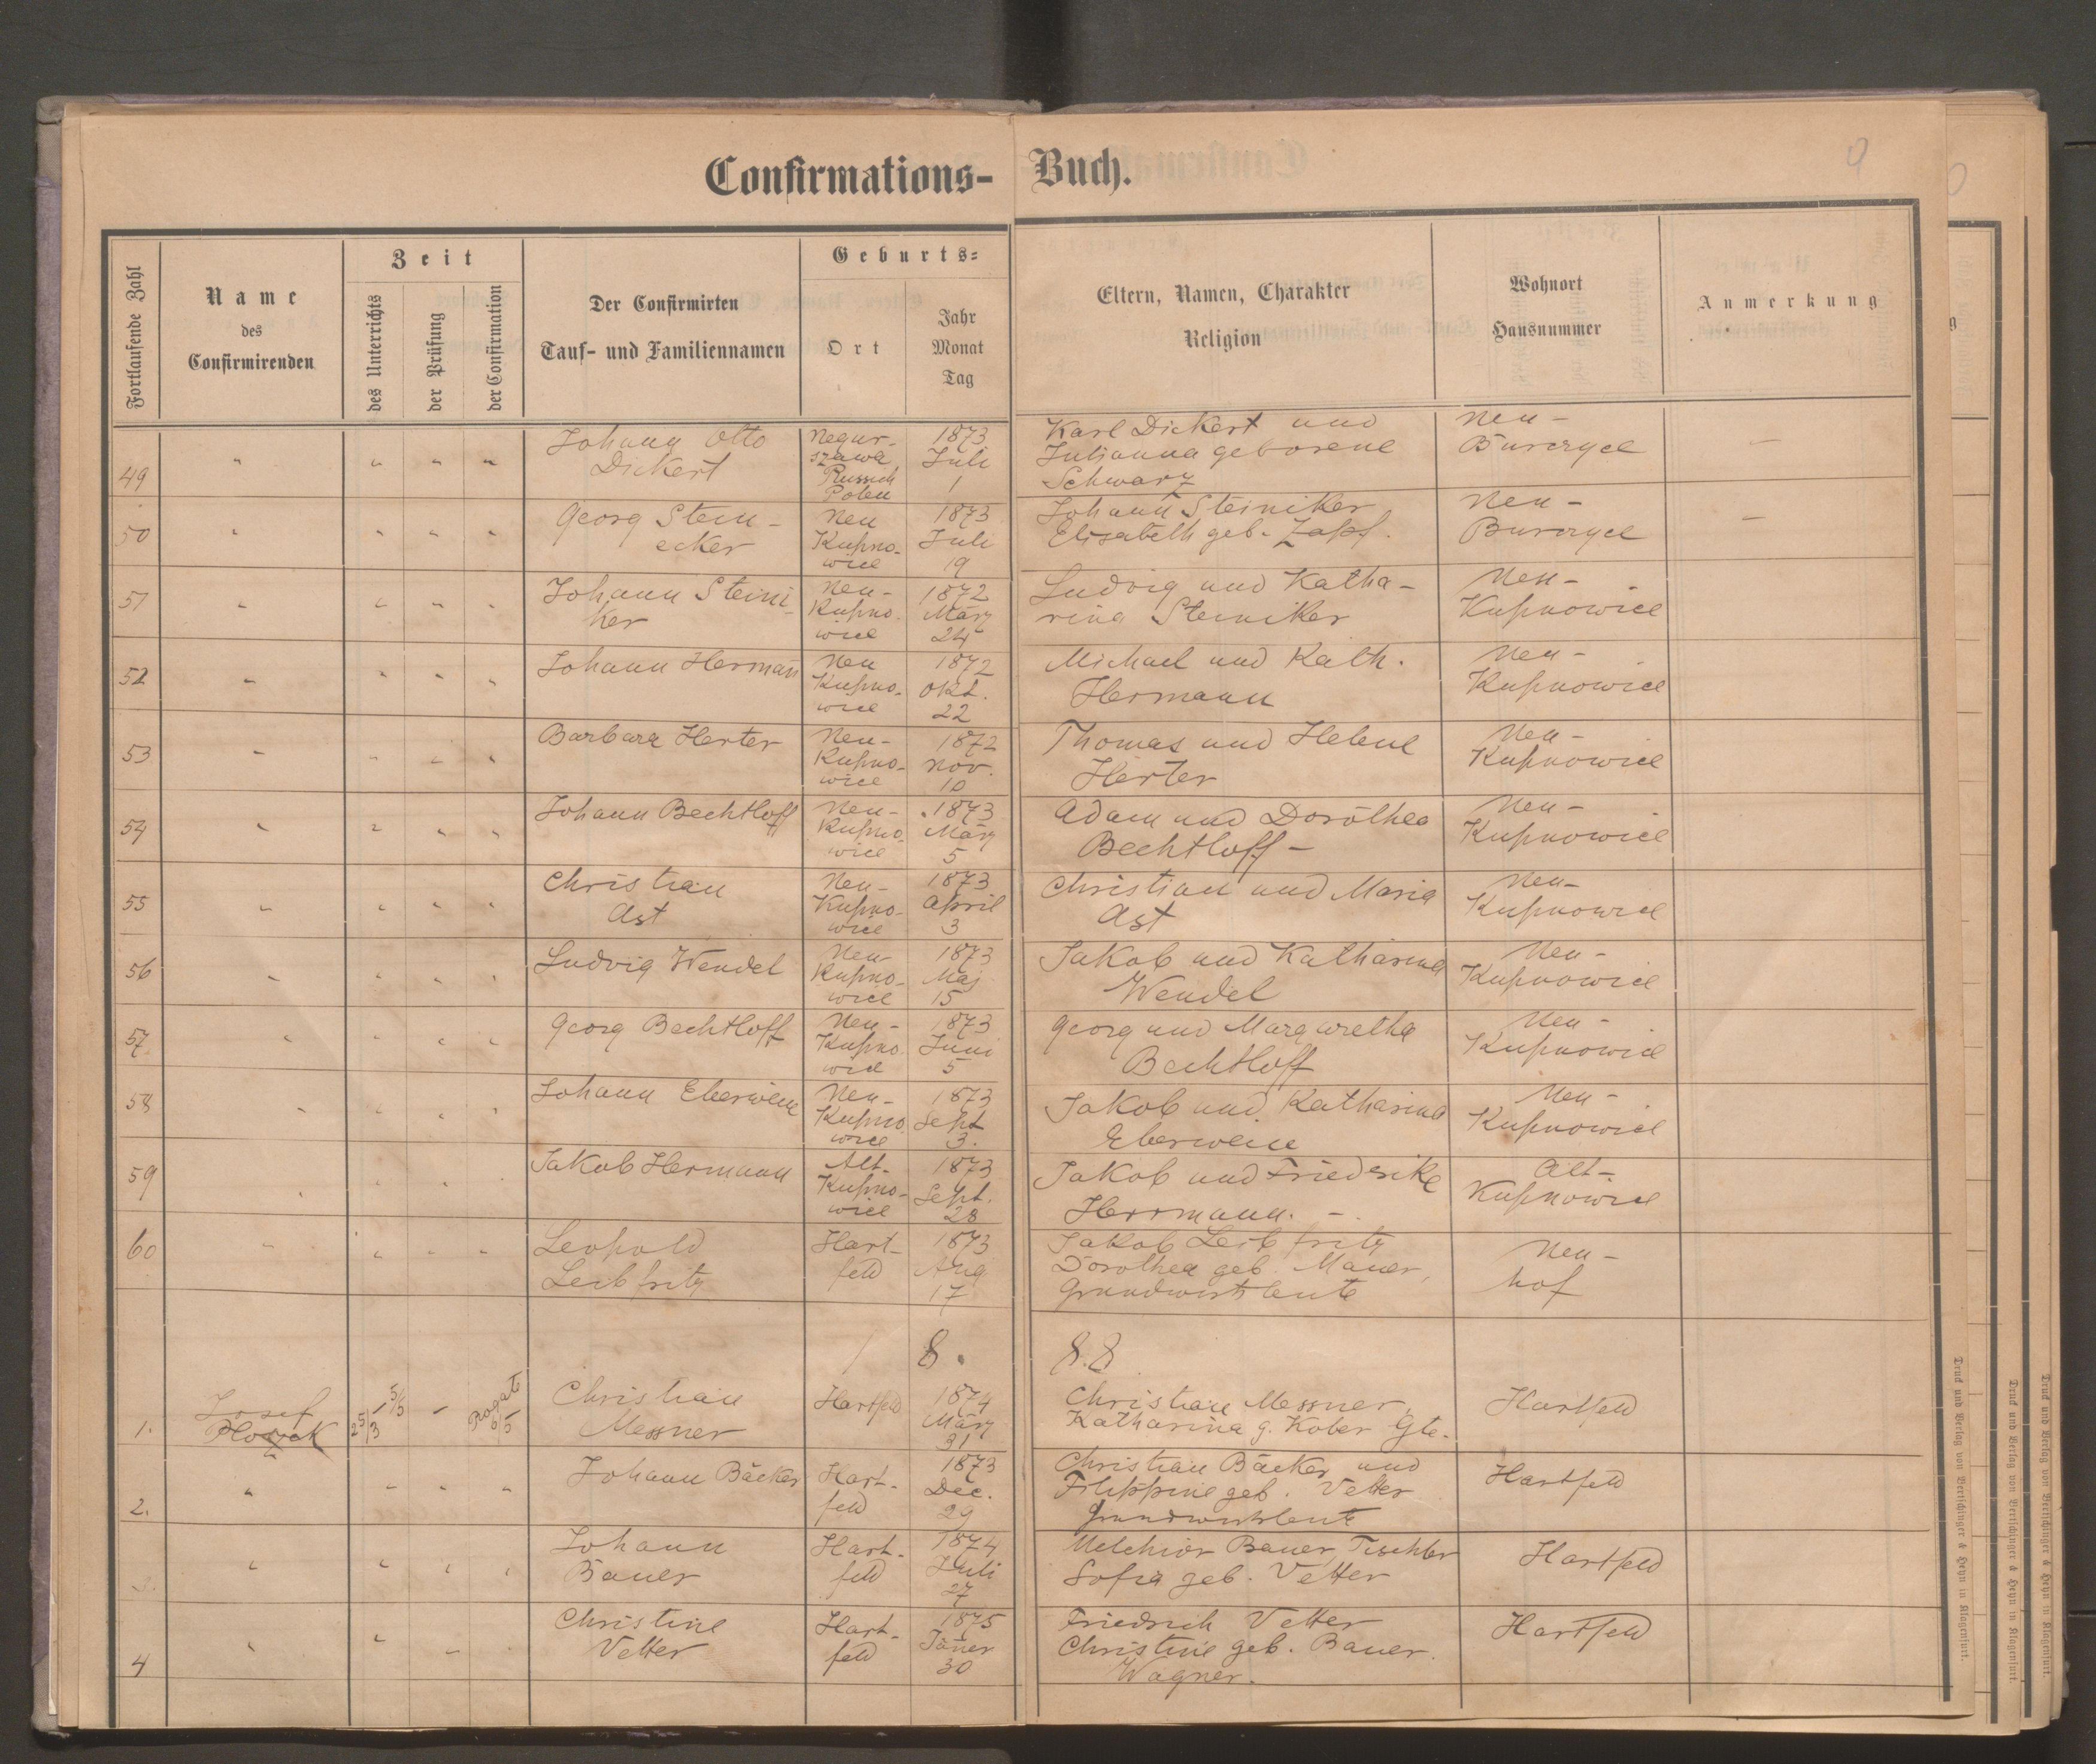 Confirmations-Buch.
9
Fortlaufende Zahl
Name
des
Confirmirenden
Zeit
des Unterrichts
der Prüfung
der Confirmation
Der Confirmirten
Tauf- und Familiennamen
Geburts-
Ort
Jahr
Monat
Tag
Eltern, Namen, Charakter
Religion
Wohnort
Hausnummer
Anmerkung
49 " " " " Johann Otto Dickert
Negurszawa Russich Polen
1873 Juli 1
Karl Dickert und Julianna geborene Schwarz
Neu-Burczyce -
50 " " " " Georg Steinecker
Neu Kupnowice
1873 Juli 19
Johann Steiniker Elisabeth geb. Zapf.
Neu-Burczyce -
51 " " " " Johann Steiniker
Neu-Kupnowice
1872 März 24
Ludvig und Katharina Steiniker
Neu-Kupnowice
52 " " " " Johann Herman
Neu Kupnowice
1872 Okt. 22
Michael und Kath. Hermann
Neu-Kupnowice
53 " " " " Barbara Herter
Neu-Kupnowice
1872 Nov. 10
Thomas und Helene Herter
Neu-Kupnowice
54 " " " " Johann Bechtloff
Neu-Kupnowice
1873 März 5
Adam und Dorothea Bechtloff -
Neu-Kupnowice
55 " " " " Christian Ast
Neu-Kupnowice
1873 April 3
Christian und Maria Ast
Neu-Kupnowice
56 " " " " Ludvig Wendel
Neu-Kupnowice
1873 Maj 15
Jakob und Katharina Wendel
Neu-Kupnowice
57 " " " " Georg Bechtloff
Neu-Kupnowice
1873 Juni 5
Georg und Margaretha Bechtloff
Neu-Kupnowice
58 " " " " Johann Eberwein
Neu-Kupnowice
1873 Sept 3.
Jakob und Katharina Eberwein
Neu-Kupnowice
59 " " " " Jakob Hermann
Alt-Kupnowice
1873 Sept. 28
Jakob und Friedrike Herrmann. -
Alt-Kupnowice
60 " " " " Leopold Leibfritz
Hartfeld
1873 Aug 17
Jakob Leibfritz Dorothea geb. Mauer, Grundwirtsleute
Neuhof
1 8. 8.8
1. Josef 25/3 - 5/5 - Rogat 6/5 Christian Messner
Hartfeld
1874 März 31
Christian Messner, Katharina g. Kober Gte.
Hartfeld
2. " " " " Johann Bäcker
Hartfeld
1873 Dec. 29
Christian Bäcker und Filippine geb. Vetter Grundwirtsleute
Hartfeld
3. " " " " Johann Bauer
Hartfeld
1874 Juli 27
Melchior Bauer, Tischler Sofia geb. Vetter
Hartfeld
4 " " " Christine Vetter
Hartfeld
1875 Jäner 30
Friedrich Vetter Christine geb. Bauer. Wagner.
Hartfeld
Druck und Verlag von Bertschinger & Heyn in Klagenfurt.
Druck und Verlag von Bertschinger & Heyn in Klagenfurt.
Druck und Verlag von Bertschinger & Heyn in Klagenfurt.